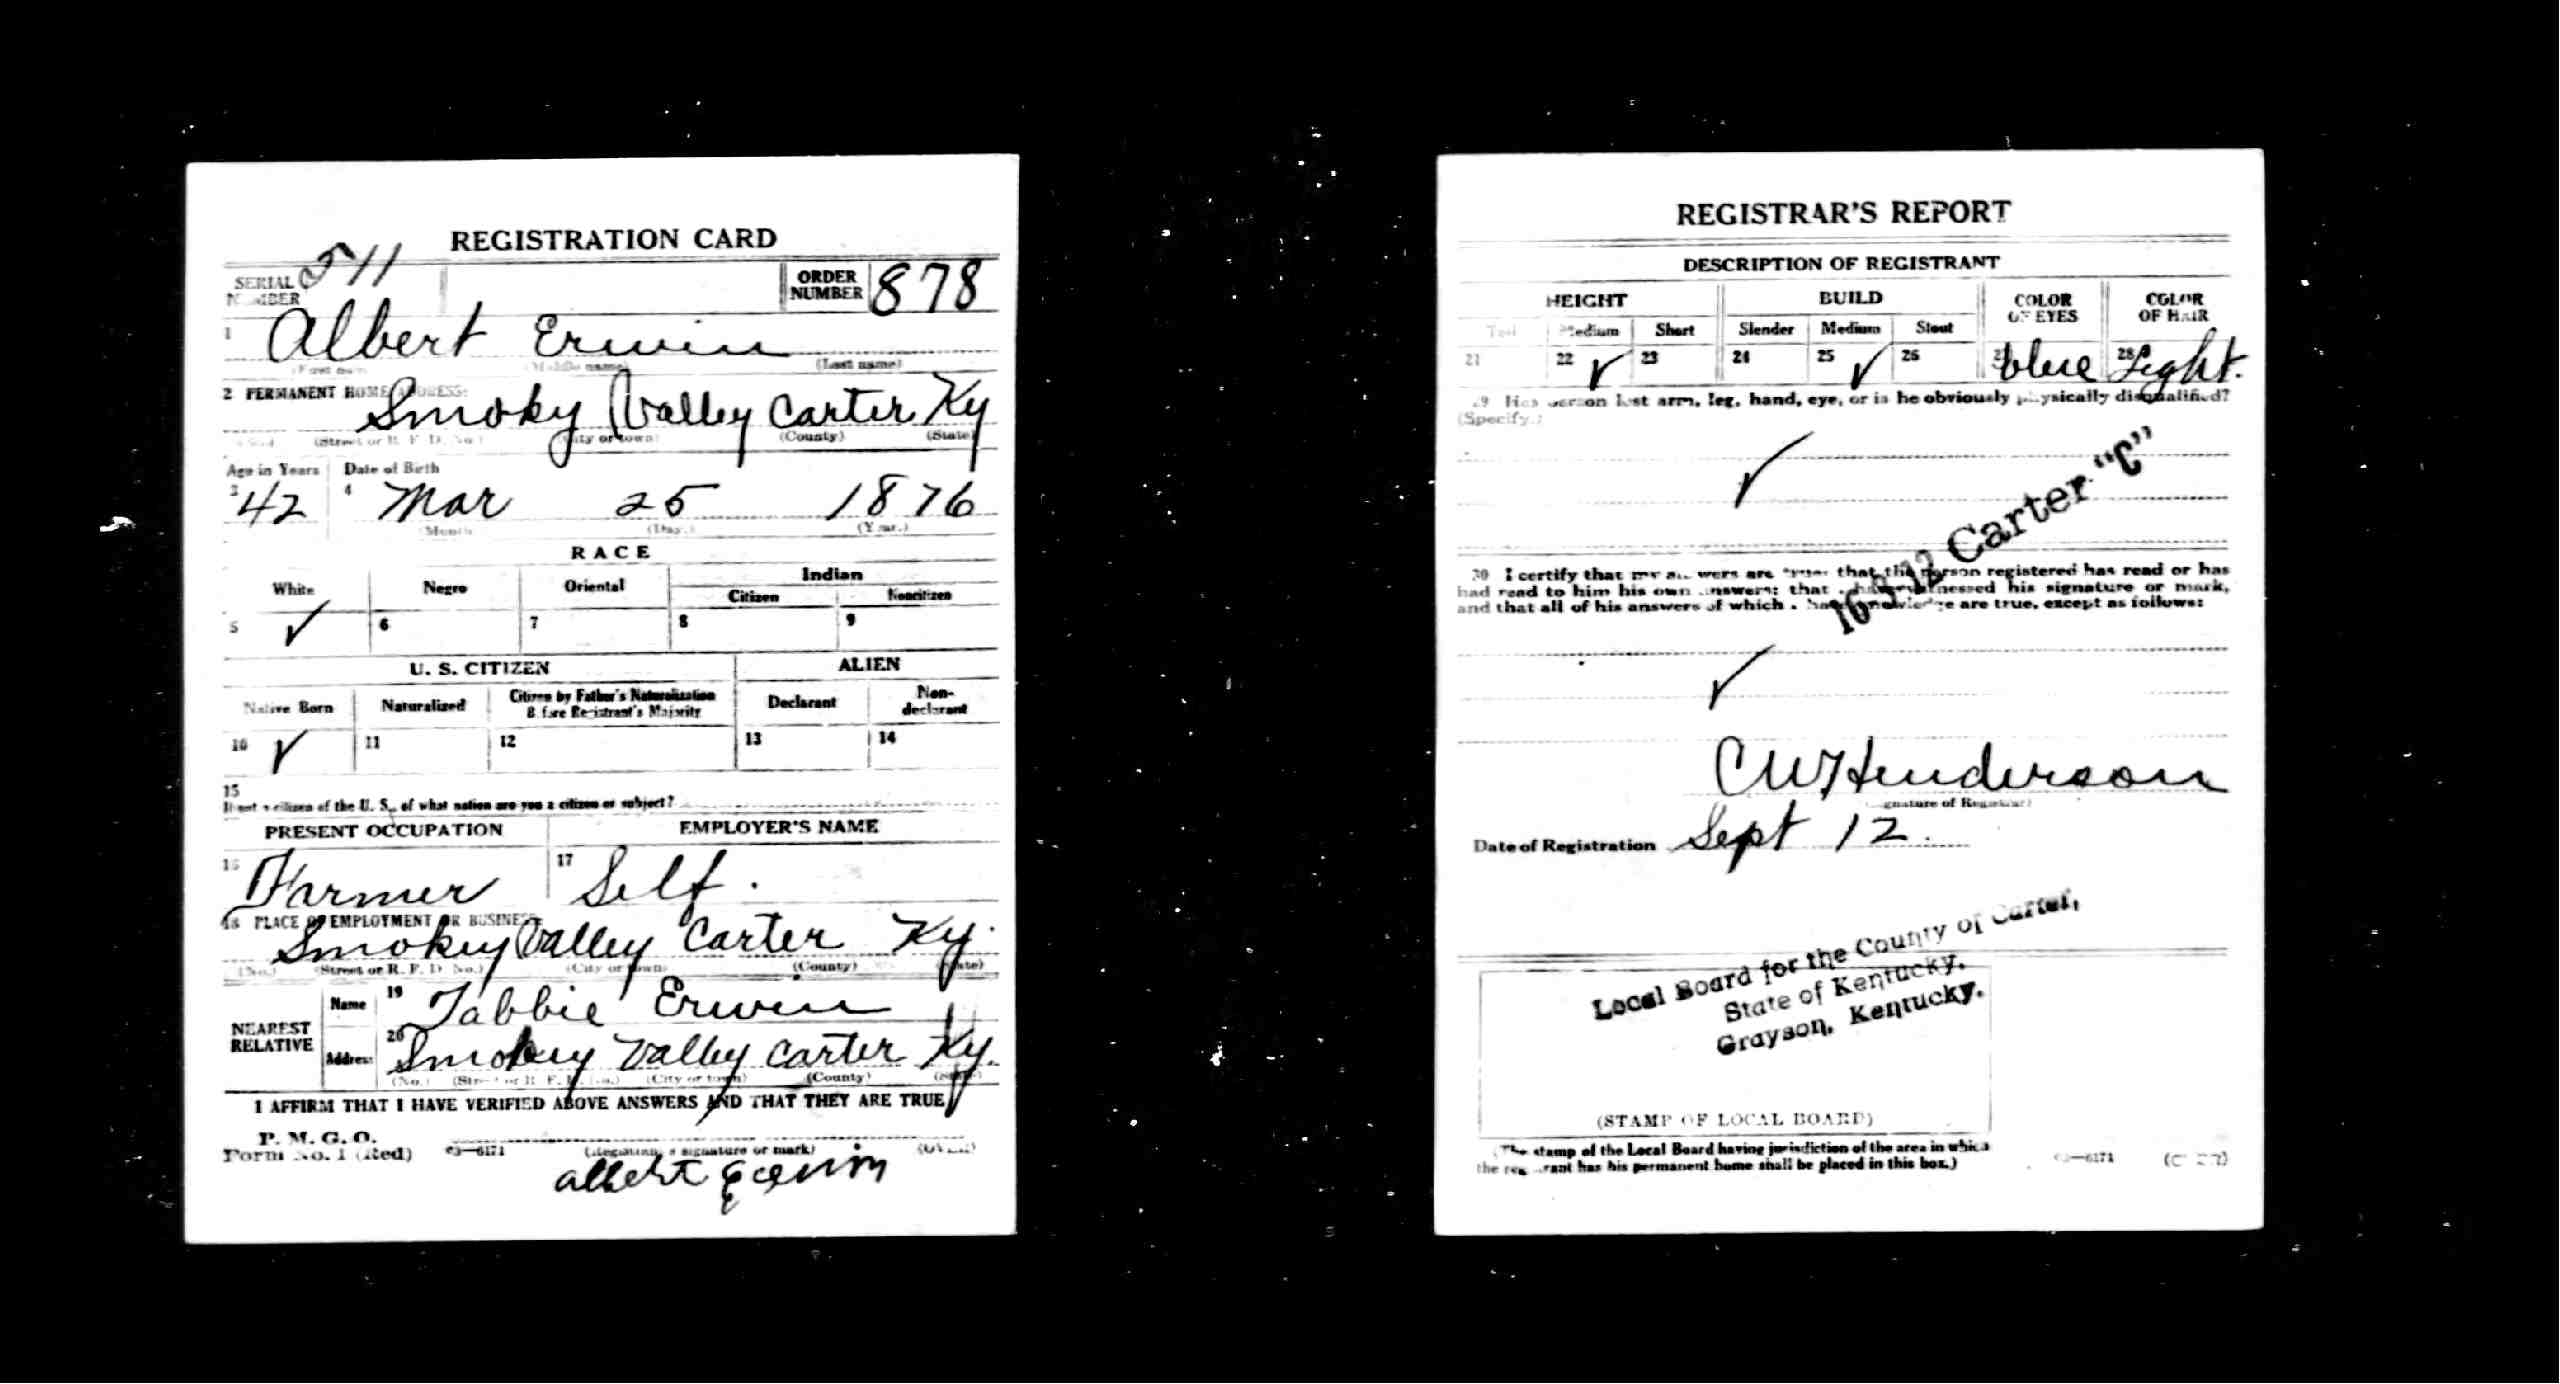 REGISTRATION CARD
SERIAL NUMBER 511 ORDER NUMBER 878
1 Albert Erwin
(First name) (Middle name) (Last name)
2 PERMANENT HOME ADDRESS:
Smoky Valley Carter Ky
(Street or R. F. D. No.) (City or town) (County) (State)
Age in Years Date of Birth
3 42 4 Mar 25 1876
(Month) (Day.) (Year.)
RACE
White Negro Oriental Indian
Citizen Noncitizen
5 ✓ 6 7 8 9
U. S. CITIZEN ALIEN
Native Born Naturalized Citizen by Father's Naturalization Before Registrant's Majority Declarant Non-declarant
10 ✓ 11 12 13 14
15
If not a citizen of the U. S., of what nation are you a citizen or subject?
PRESENT OCCUPATION EMPLOYER'S NAME
16 Farmer 17 Self.
18 PLACE OF EMPLOYMENT OR BUSINESS:
Smokey Valley Carter Ky.
(No.) (Street or R. F. D. No.) (City or town) (County) (State)
NEAREST RELATIVE Name 19 Tabbie Erwin
Address 20 Smokey Valley Carter Ky.
(No.) (Street or R. F. D. No.) (City or town) (County) (State)
I AFFIRM THAT I HAVE VERIFIED ABOVE ANSWERS AND THAT THEY ARE TRUE
P. M. G. O.
Form No. 1 (Red) 03—6171 (Registrant's signature or mark) (OVER)
albert
REGISTRAR'S REPORT
DESCRIPTION OF REGISTRANT
HEIGHT BUILD COLOR OF EYES COLOR OF HAIR
Tall Medium Short Slender Medium Stout
21 22 ✓ 23 24 25 ✓ 26 27 blue 28 Light.
29 Has person lost arm, leg, hand, eye, or is he obviously physically disqualified?
(Specify.)
✓
16-1-12 Carter "C"
30 I certify that my answers are true; that the person registered has read or has
had read to him his own answers; that I have witnessed his signature or mark,
and that all of his answers of which I have knowledge are true, except as follows:
✓
C W Henderson
(Signature of Registrar)
Date of Registration Sept 12.
Local Board for the County of Carter,
State of Kentucky.
Grayson, Kentucky.
(STAMP OF LOCAL BOARD)
(The stamp of the Local Board having jurisdiction of the area in which
the registrant has his permanent home shall be placed in this box.)
03—6171 (OVER)